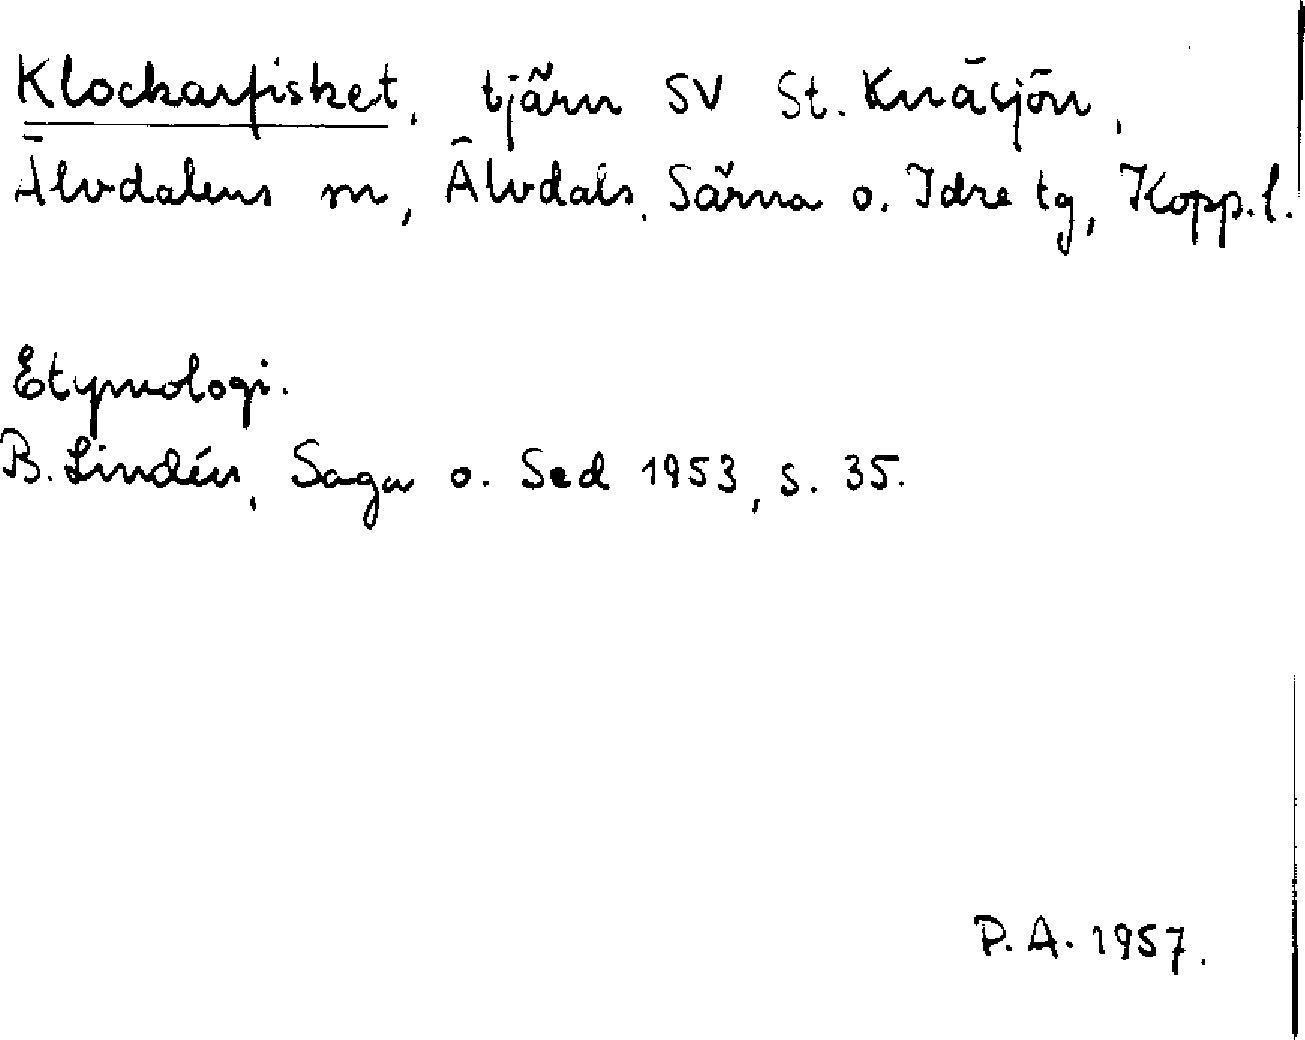 Klockarfisket, tjärn SV St. Knäsjön,
Älvdalens sn, Älvdals, Särna o. Idre tg, Kopp.l.
Etymologi.
B. Lindén, Saga o. Sed 1953, s. 35.
P.A. 1957.